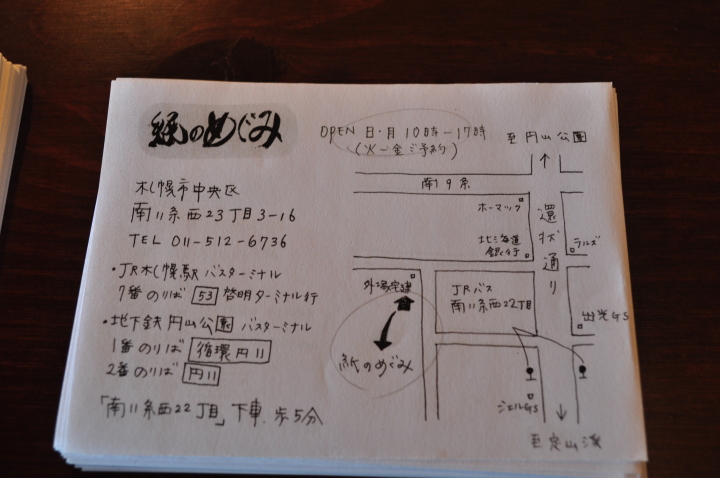 紙のめぐみ
OPEN 日・月 10時-17時
(火-金ご予約)
札幌市中央区
南11条西23丁目3-16
TEL 011-512-6736
・JR札幌駅 バスターミナル
7番のりば 53 啓明ターミナル行
・地下鉄円山公園 バスターミナル
1番のりば 循環円11
2番のりば 円11
「南11条西22丁目」下車 歩5分
至円山公園
南9条
ホーマック
環状通り
北海道
銀行
ラルズ
JRバス
南11条西22丁目
出光GS
紙のめぐみ
GS
至定山渓